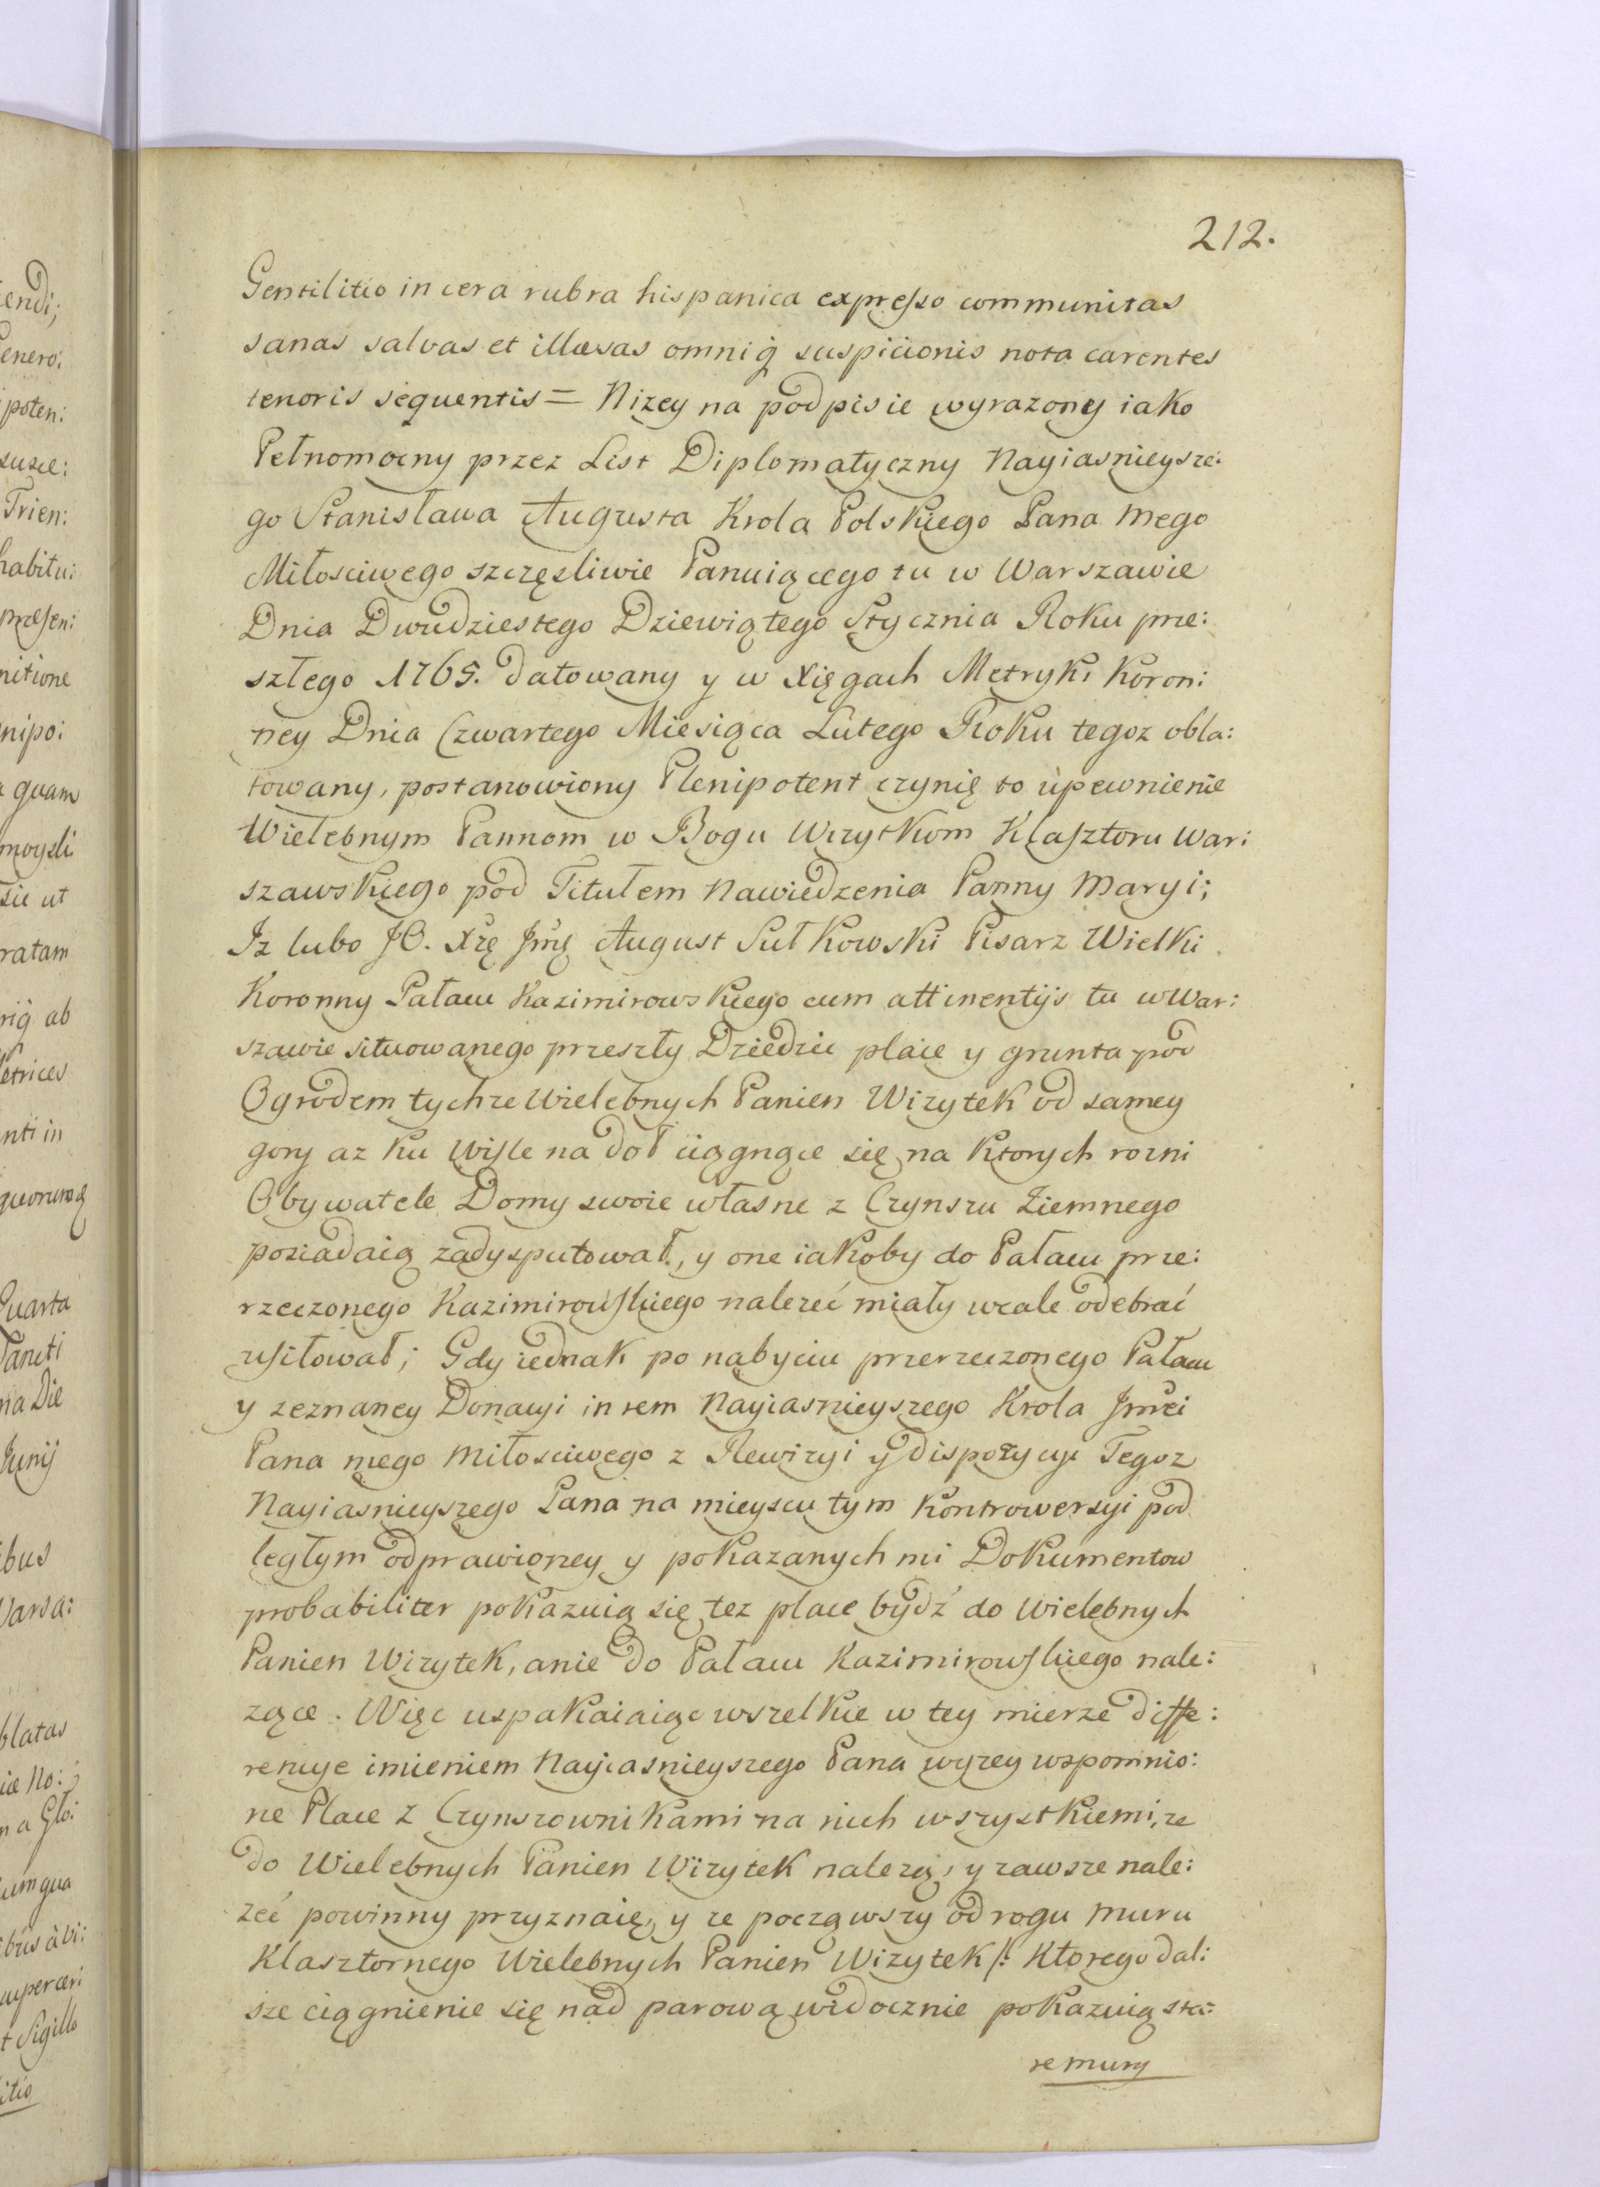 212.
Gentilitio in cera rubra hispanica expresso communitas
sanas salvas et illæsas omniq̃ suspicionis nota carentes
tenoris sequentis = Nizey na podpisie wyrazony iako
Pełnomocny przez List Diplomatyczny Nayiasnieysze:
go Stanisława Augusta Krola Polskiego Pana mego
Miłosciwego szczęsliwie Panuiącego tu w Warszawie
Dnia Dwudziestego Dziewiątego Stycznia Roku prze:
szłego 1765. datowany y w Xięgach Metryki Koron:
ney Dnia Czwartego Miesiąca Lutego Roku tegoz obla:
towany, postanowiony Plenipotent czynię to upewnienie
Wielebnym Pannom w Bogu Wizytkom Klasztoru War:
szawskiego pod Titułem Nawiedzenia Panny Maryi;
Iz lubo JO. Xżę Jmć August Sułkowski Pisarz Wielki
Koronny Pałacu Kazimirowskiego cum attinentijs tu w War:
szawie situowanego przeszły Dziedzic place y grunta pod
Ogrodem tychze Wielebnych Panien Wizytek od samey
gory az ku Wisle na doł ciągnące się na ktorych rozni
Obywatele Domy swoie własne z Czynszu Ziemnego
posiadaią zadysputował, y one iakoby do Pałacu prze:
rzeczonego Kazimirowskiego nalezeć miały wcale odebrać
usiłował; Gdy iednak po nabyciu przerzeczonego Pałacu
y zeznaney Donacyi in rem Nayiasnieyszego Krola Jmci
Pana mego Miłosciwego z Rewizyi y dispozycyi Tegoz
Nayiasnieyszego Pana na mieyscu tym kontrowersyi pod
ległym odprawioney y pokazanych mi Dokumentow
probabiliter pokazuią się tez place bydź do Wielebnych
Panien Wizytek, a nie do Pałacu Kazimirowskiego nale:
zące. Więc uspakaiaiąc wszelkie w tey mierze diffe:
rencye imieniem Nayiasnieyszego Pana wyzey wspomnio:
ne Place z Czynszownikami na nich wszystkiemi, ze
do Wielebnych Panien Wizytek nalezą, y zawsze nale:
zeć powinny przyznaię, y ze począwszy od rogu muru
Klasztornego Wielebnych Panien Wizytek /: ktorego dal:
sze ciągnienie się nad parową widocznie pokazuią sta:
re mury